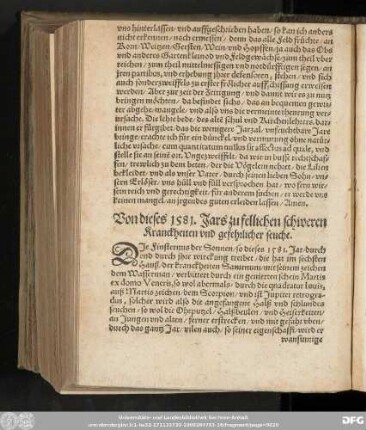 vns hinterlassen/ vnd auffgeschrieben haben/ so kan ich anders
nicht erkennen/ noch ermessen/ denn das alle Feld früchte/ an
Korn/ Weitzen/ Gersten/ Wein/ vnd Hopffen/ ja auch das Obs
vnd anderes Gartenkleinod vnd Feldgewächse/ zum theil vber
reichen/ zum theil mittelmessigen vnd notdürfftigen segen/ an
jren partibus, vnd erhebung jhrer defensoren, stehen/ vnd sich
auch sonder zweiffel zu erster frölicher auff
werden. Aber zur zeit der Zeitigung/ vnd damit wir es zu nutz
bringen möchten/ da befindet sichs/ das an bequemen gewit-
ter abgehe/ mangele/ vnd also vns die vermeinte thewrung ver-
ursache. Die lehre beide/ des alte schul vnd Kirchenlehrers/ dar-
innen er fürgibet/ das die wenigere Jarzal/ vnfruchtbare Jars
bringe/ erachte ich für ein dünckel/ vnd vermutung ohne natür-
liche vrsache/ cum quantitatum nullus sit affectus ad quale, vnd
stelle sie an seinē ort. Vngezweiffelt/ da wir in busse reichschaf-
fen/ trewlich zu dem beten/ der die Vögelein nehret/ die Lilien
bekleidet/ vnd als vnser Vater/ durch seinen lieben Sohn/ vn-
sern Erlöser/ vns hüll vnd füll versprochen hat/ wo fern wir
sein reich vnd gerechtigkeit/ für anderm suchen/ er werde vns
keinen mangel/ an jrgendes guten erleiden lassen/ Amen.
Von dieses 1581. Jars zufellichen schweren
Kranckheiten vnd gefehrlicher seuche.
DIe Finsternus der Sonnen/ so dieses 1581. Jar/ durch
vnd durch jhre wirckung treibet/ die hat im sechsten
Hauß/ der kranckheiten Saturnum/ mit seinem zeichen
dem Wasserman/ verbittert durch ein gevierten schein Martis
ex domo Veneris, so wol abermals/ durch die quadratur Iouis,
auß Martis zeichen/ dem Scorpion/ vnd ist Jupiter retrogra-
dus, solcher wird also die angefangene Halß vnd schlundes
seuchen/ so wol die Ohrputzel/ Halßbeulen/ vnd Heiserkeiten/
an Jungen vnd alten/ ferner erstrecken/ vnd mit gefahr vben/
durch das gantz Jar/ vilen auch/ so seiner eigenschafft/ wird er
wansinnige
Universitäts- und Landesbibliothek Sachsen-Anhalt
DFG